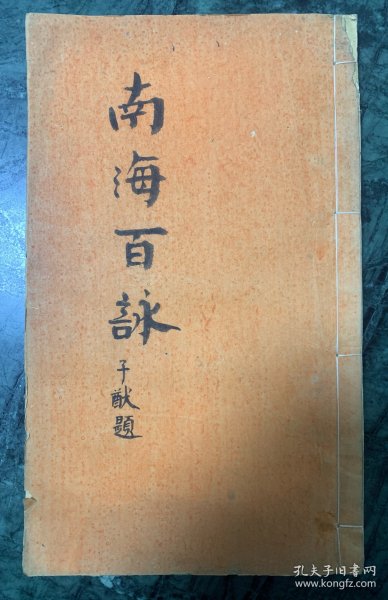 南海百詠
子猷題
孔夫子旧书网
www.kongfz.com